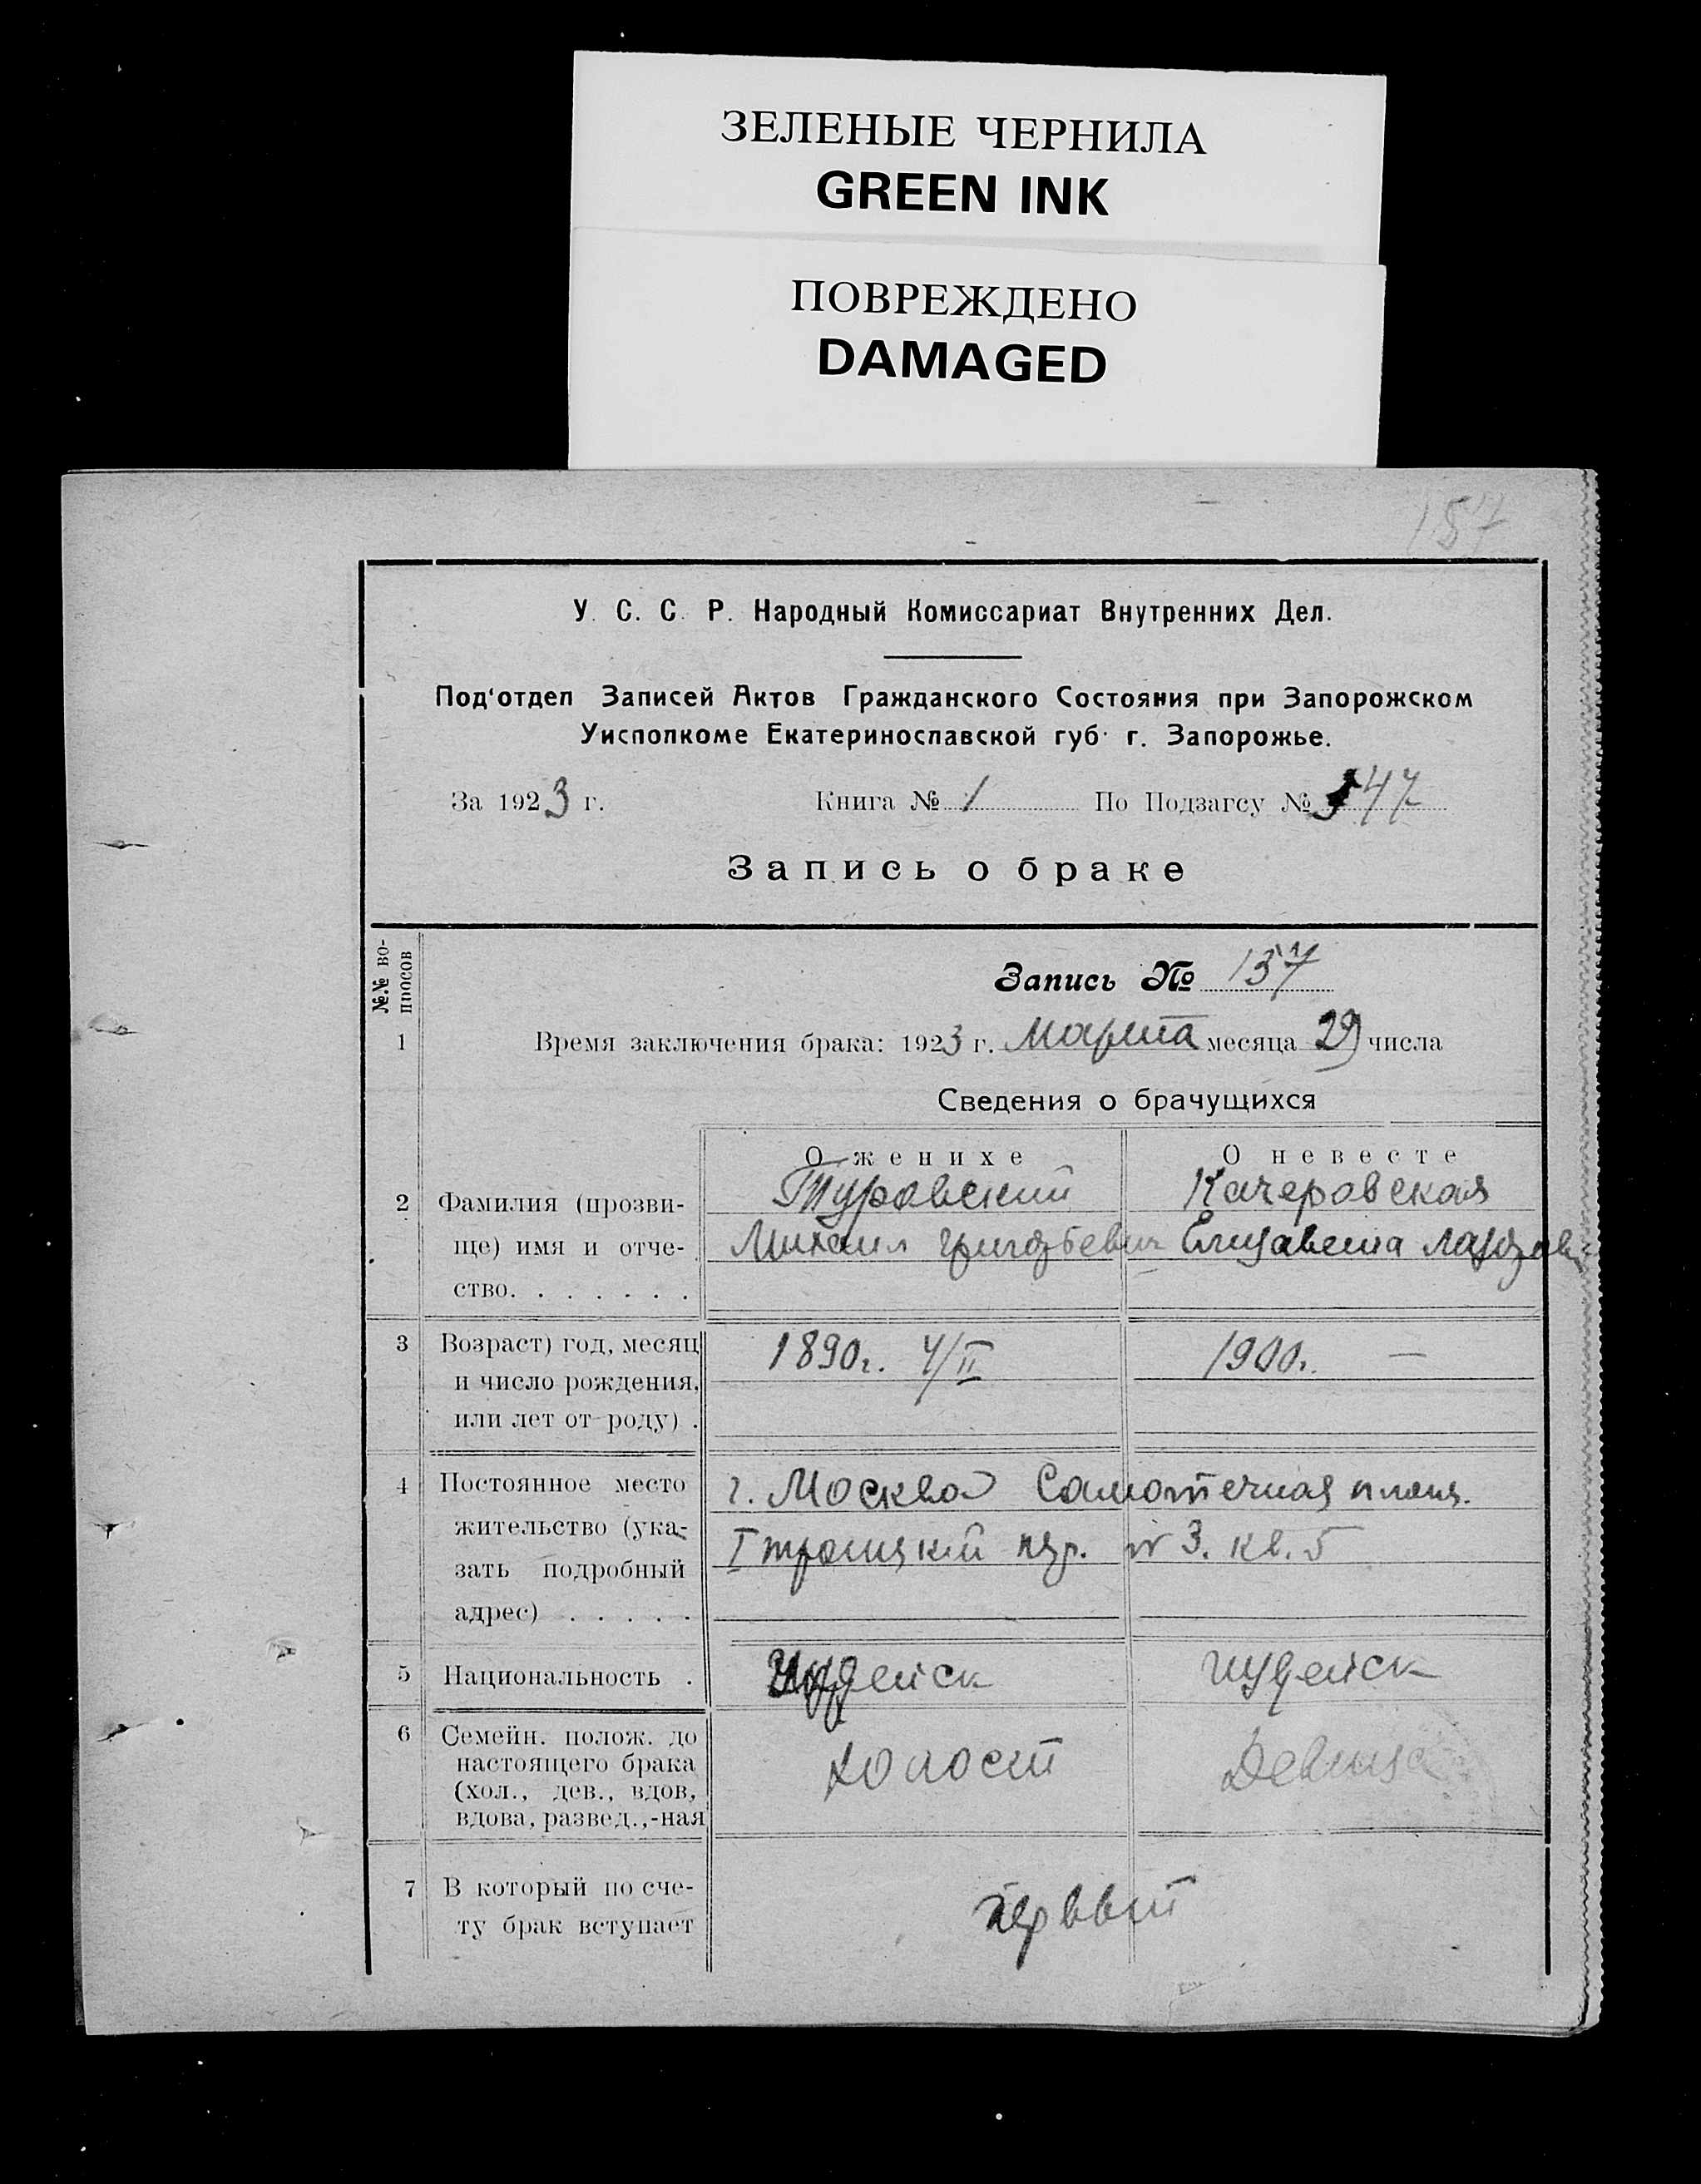 ЗЕЛЕНЫЕ ЧЕРНИЛА
GREEN INK
ПОВРЕЖДЕНО
DAMAGED
157
У. С. С. Р. Народный Комиссариат Внутренних Дел.
Под'отдел Записей Актов Гражданского Состояния при Запорожском
Уисполкоме Екатеринославской губ. г. Запорожье.
За 1923 г. Книга № 1 По Подзагсу № 47
Запись о браке
№.№ во-
просов
Запись № 137
1 Время заключения брака: 1923 г. Марта месяца 29 числа
Сведения о брачущихся
О женихе О невесте
2 Фамилия (прозви- Туровский Качеровская
ще) имя и отче- Михаил Григорьевич Елизавета
ство. . . . . . .
3 Возраст) год, месяц 1890г. 4/II 1900г. —
и число рождения,
или лет от роду) .
4 Постоянное место г. Москва Самотечная площ.
жительство (ука- I троицкий пер. № 3. кв. 5
зать подробный
адрес) . . . . .
5 Национальность . Иудейск иудейск
6 Семейн. полож. до
настоящего брака холост Девица
(хол., дев., вдов,
вдова, развед.,-ная
7 В который по сче- первый
ту брак вступает